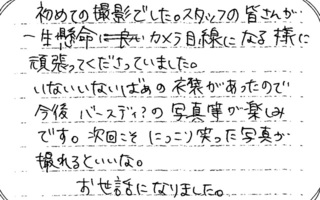 初めての撮影でした。スタッフの皆さんが
一生懸命にカメラ目線になる様に
頑張ってくださっていました。
いないいないばぁの衣装があったので
今後 バースディ?の写真等が楽しみ
です。次回こそ にっこり笑った写真が
撮れるといいな。
お世話になりました。